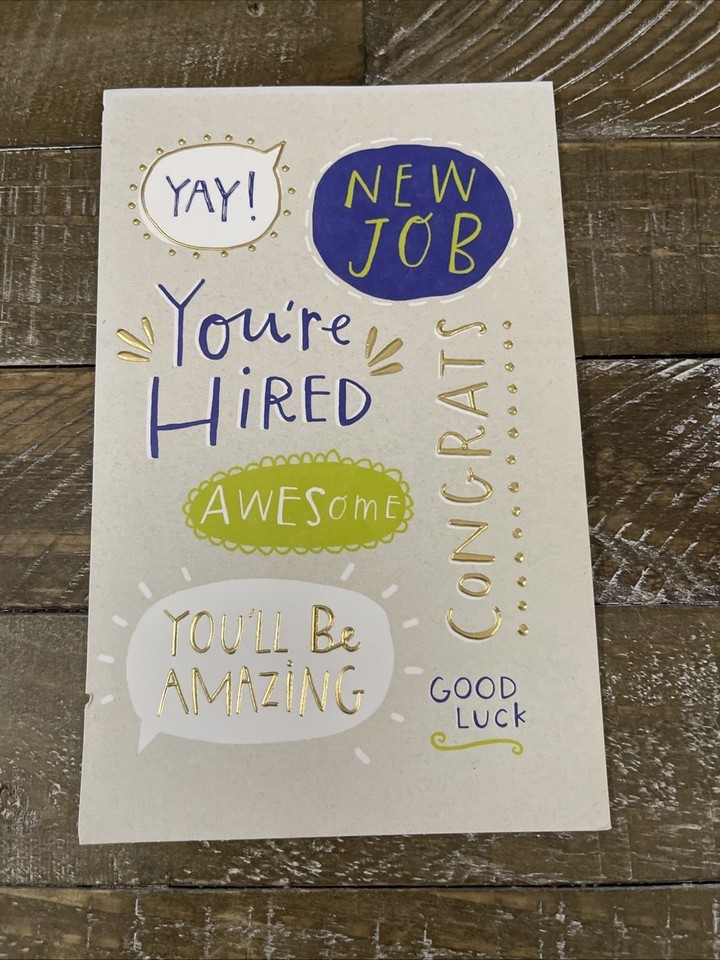 YAY!
NEW
JOB
You're
HiRED
CoNGRATS
AWESomE
YOU'LL Be
AMAZiNG
GOOD
LUCK